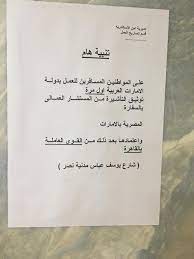 مديرية امن الاسكندرية
قسم تصاريح العمل
تنبية هام
على المواطنين المسافرين للعمل بدولة
الامارات العربية اول مرة
توثيق التاشيرة من المستشار العمالى
بالسفارة
المصرية بالامارات
واعتمادها بعد ذلك من القوى العاملة
بالقاهرة
( شارع يوسف عباس مدنية نصر )